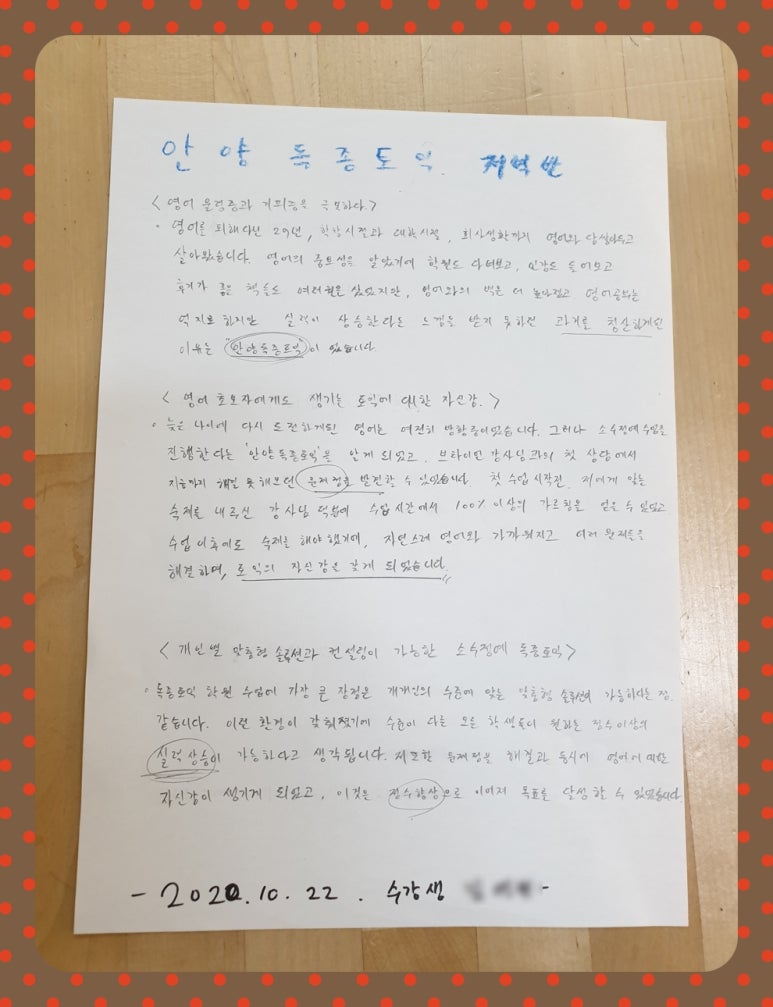 안양 독종토익 저녁반
<영어 울렁증과 기피증을 극복하다.>
· 영어를 피해다닌 20년, 학창시절과 대학시절, 회사생활까지 영어와 담쌓아두고
살아왔습니다. 영어의 중요성을 알았기에 학원도 다녀보고, 인강도 들어보고
후기가 좋은 책들도 여러권을 샀었지만, 영어와의 벽은 더 높아졌고 영어공부는
억지로 하지만 실력이 상승한다는 느낌을 받지 못하던 과거를 청산하게된
이유는 "안양독종토익"이 있습니다.
<영어 초보자에게도 생기는 토익에 대한 자신감.>
· 늦은 나이에 다시 도전하게된 영어는 여전히 방황중이었습니다. 그러나 소수정예 수업을
진행한다는 '안양독종토익'을 알게 되었고, 브라이언 강사님과의 첫 상담에서
지금까지 해결 못해보던 문제점을 발견할 수 있었습니다. 첫 수업 시작전, 저에게 맞는
숙제를 내주신 강사님 덕분에 수업시간에서 100% 이상의 가르침을 얻을 수 있었고
수업 이후에도 숙제를 해야 했기에, 자연스레 영어와 가까워지고 여러 문제들을
해결하며, 토익의 자신감을 갖게 되었습니다.
<개인별 맞춤형 솔루션과 컨설팅이 가능한 소수정예 독종토익>
· 독종토익 학원 수업에 가장 큰 장점은 개개인의 수준에 맞는 맞춤형 솔루션이 가능하다는 점
같습니다. 이런 환경이 갖춰졌기에 수준이 다른 모든 학생들이 원하는 점수 이상의
실력상승이 가능하다고 생각됩니다. 저 또한 문제점을 해결과 동시에 영어에 대한
자신감이 생기게 되었고, 이것은 점수향상으로 이어져 목표를 달성할 수 있었습니다
- 2020.10.22. 수강생 -